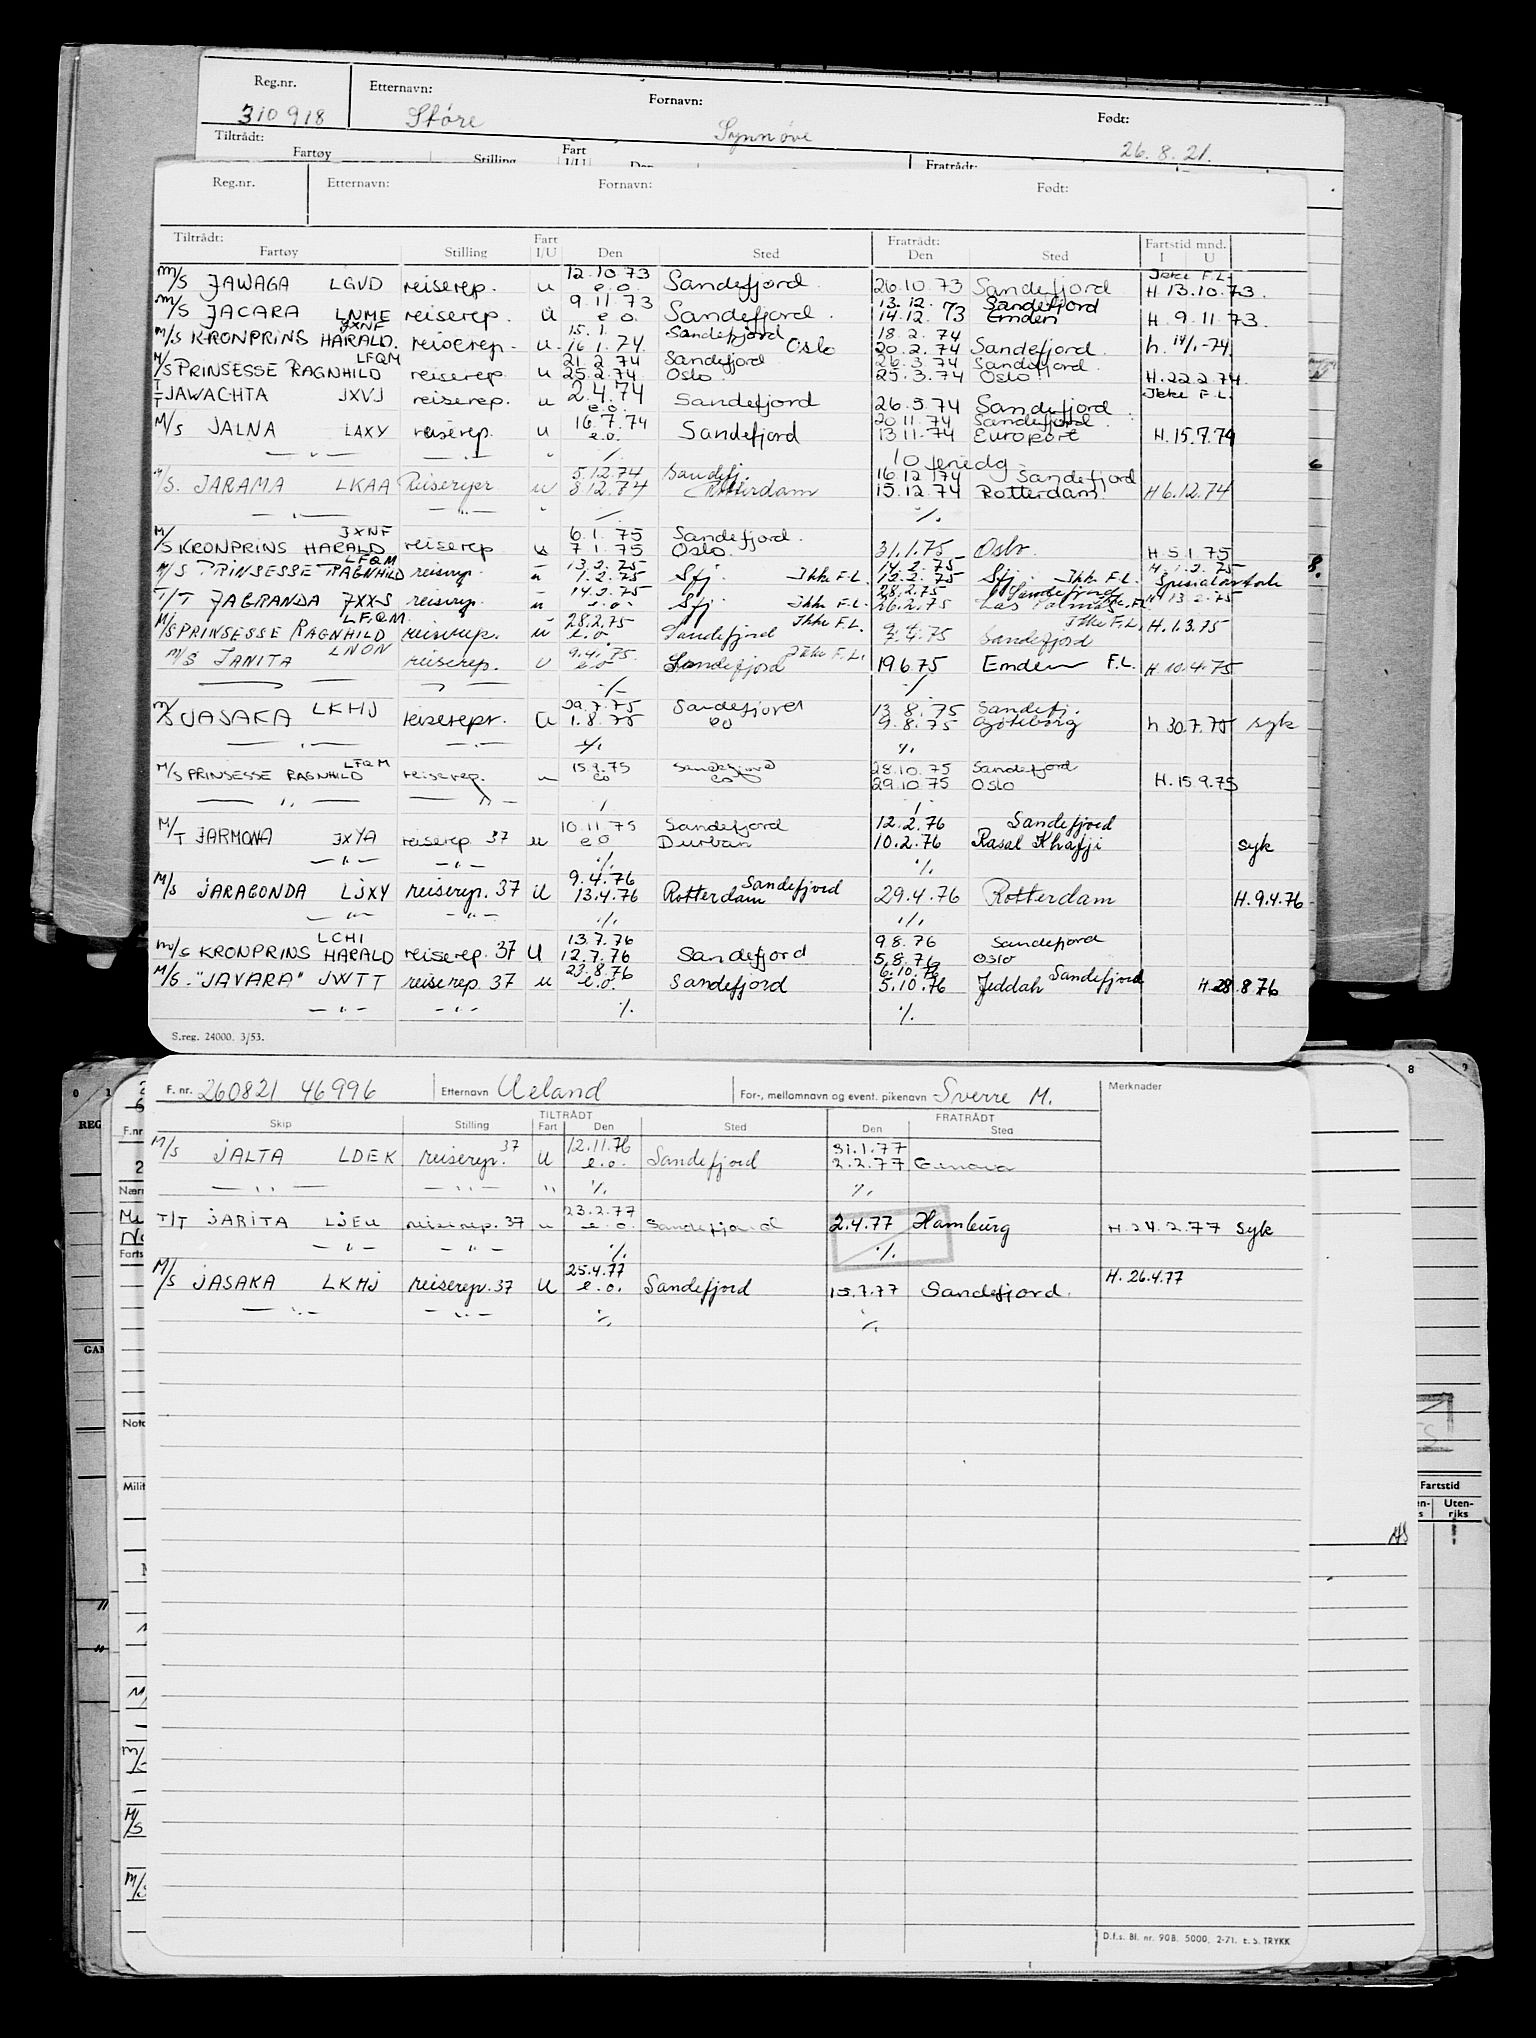 Reg.nr. Etternavn: Fornavn: Født:
310918 Støre Synnøve 26.8.21.
Tiltrådt: Fartøy Stilling Fart I/U Den Fratrådt:
Reg.nr. Etternavn: Fornavn: Født:
Tiltrådt: Fratrådt: Fartstid mnd.
Fartøy Stilling Fart I/U Den Sted Den Sted I U
12.10.73 Ikke F.L.
M/S JAWAGA LGVD reiserep. u e.o. Sandefjord 26.10.73 Sandefjord H.13.10.73.
9.11.73 13.12. Sandefjord
M/S JACARA LNME reiserep. u e.o. Sandefjord. 14.12.73 Emden H.9.11.73.
JXNF 15.1. Sandefjord 18.2.74
M/S KRONPRINS HARALD. reiserep. u 16.1.74. Oslo 20.2.74 Sandefjord. h. 14/1-74
LFQM 21.2.74 Sandefjord 26.3.74 Sandefjord.
M/S PRINSESSE RAGNHILD reiserep. u 25.2.74 Oslo. 25.3.74 Oslo H.22.2.74.
2.4.74 Ikke F.L.
T/T JAWACHTA JXVJ reiserep. u e.o. Sandefjord 26.5.74 Sandefjord
16.7.74 20.11.74 Sandefjord.
M/S JALNA LAXY reiserep. u e.o. Sandefjord 13.11.74 Europort H.15.7.74
— " — — " — ./. 10 feriedg.
5.12.74 Sandefj. 16.12.74 Sandefjord
M/S. JARAMA LKAA Reiserepr. u 8.12.74 Rotterdam 15.12.74 Rotterdam H 6.12.74
— " — — " — " ./. ./.
JXNF 6.1.75 Sandefjord.
M/S KRONPRINS HARALD reiserep u 7.1.75 Oslo. 31.1.75 Oslo. H.5.1.75
LFQM 13.2.75 14.2.75 H.1.2.75
M/S PRINSESSE RAGNHILD reiserep. u 1.2.75 Sfj. Ikke F.L. 12.2.75 Sfj. Ikke F.L.
14.2.75 28.2.75 Sandefjord
T/T JAGRANDA JXXS reiserep. u e.o. Sfj Ikke F.L. 26.2.75 Las Palmas Ikke F.L. H 13.2.75
LFQM 28.2.75 Ikke F.L. Ikke F.L.
M/S PRINSESSE RAGNHILD reiserep. u e.o Sandefjord 4.75 Sandefjord H.1.3.75
LNON 9.4.75. Ikke F.L.
M/S JANITA reiserep. u e.o Sandefjord 19.6.75 Emden F.L. H 10.4.75
— " — — " — ./. ./.
LKHJ 7.75 Sandefjord 13.8.75 Sandefj.
M/S JASAKA reiserepr. U 1.8.75 eo 9.8.75 Gøteborg h 30.7.75 syk
— " — — " — ./. ./.
LFQM 15.9.75 Sandefjord 28.10.75 Sandefjord
M/S PRINSESSE RAGNHILD reiserep. u eo eo 29.10.75 Oslo H.15.9.75
— " — — " — ./. ./.
10.11.75 Sandefjord 12.2.76 Sandefjord
M/T JARMONA JXYA reiserep 37 u eo Durban 10.2.76 Rasal Khafji syk
— " — — " — ./. ./.
9.4.76 Sandefjord
M/S JARAGONDA LJXY reiserep. 37 U 13.4.76 Rotterdam 29.4.76 Rotterdam H.9.4.76
— " — — " — ./. ./.
LCHI 13.7.76 9.8.76 Sandefjord
M/S KRONPRINS HARALD reiserep. 37 U 12.7.76 Sandefjord 5.8.76 Oslo
23.8.76 6.10.76 Sandefjord
M/S. "JAVARA" JWTT reiserep. 37 u e.o. Sandefjord 5.10.76 Jeddah H.28.8 76
— " — — " — ./. ./.
S.reg. 24000. 3/53.
F. nr. 260821 46996 Etternavn Ueland For-, mellomnavn og event. pikenavn Sverre M. Merknader
TILTRÅDT FRATRÅDT
Skip Stilling Fart Den Sted Den Sted
12.11.76 31.1.77
M/S JALTA LDEK reiserep. 37 U e.o. Sandefjord 2.2.77 Genova
— " — — " — " ./. ./.
23.2.77
T/T JARITA LJEU reiserep. 37 u e.o. Sandefjord 2.4.77 Hamburg H.24.2.77 syk
— " — — " — ./. ./.
25.4.77 H. 26.4.77
M/S JASAKA LKHJ reiserep. 37 U e.o. Sandefjord 15.7.77 Sandefjord.
— " — — " — ./. ./.
Fartstid
Uten-riks
D.f.s. Bl. nr. 90B. 5000. 2-71. E. S. TRYKK